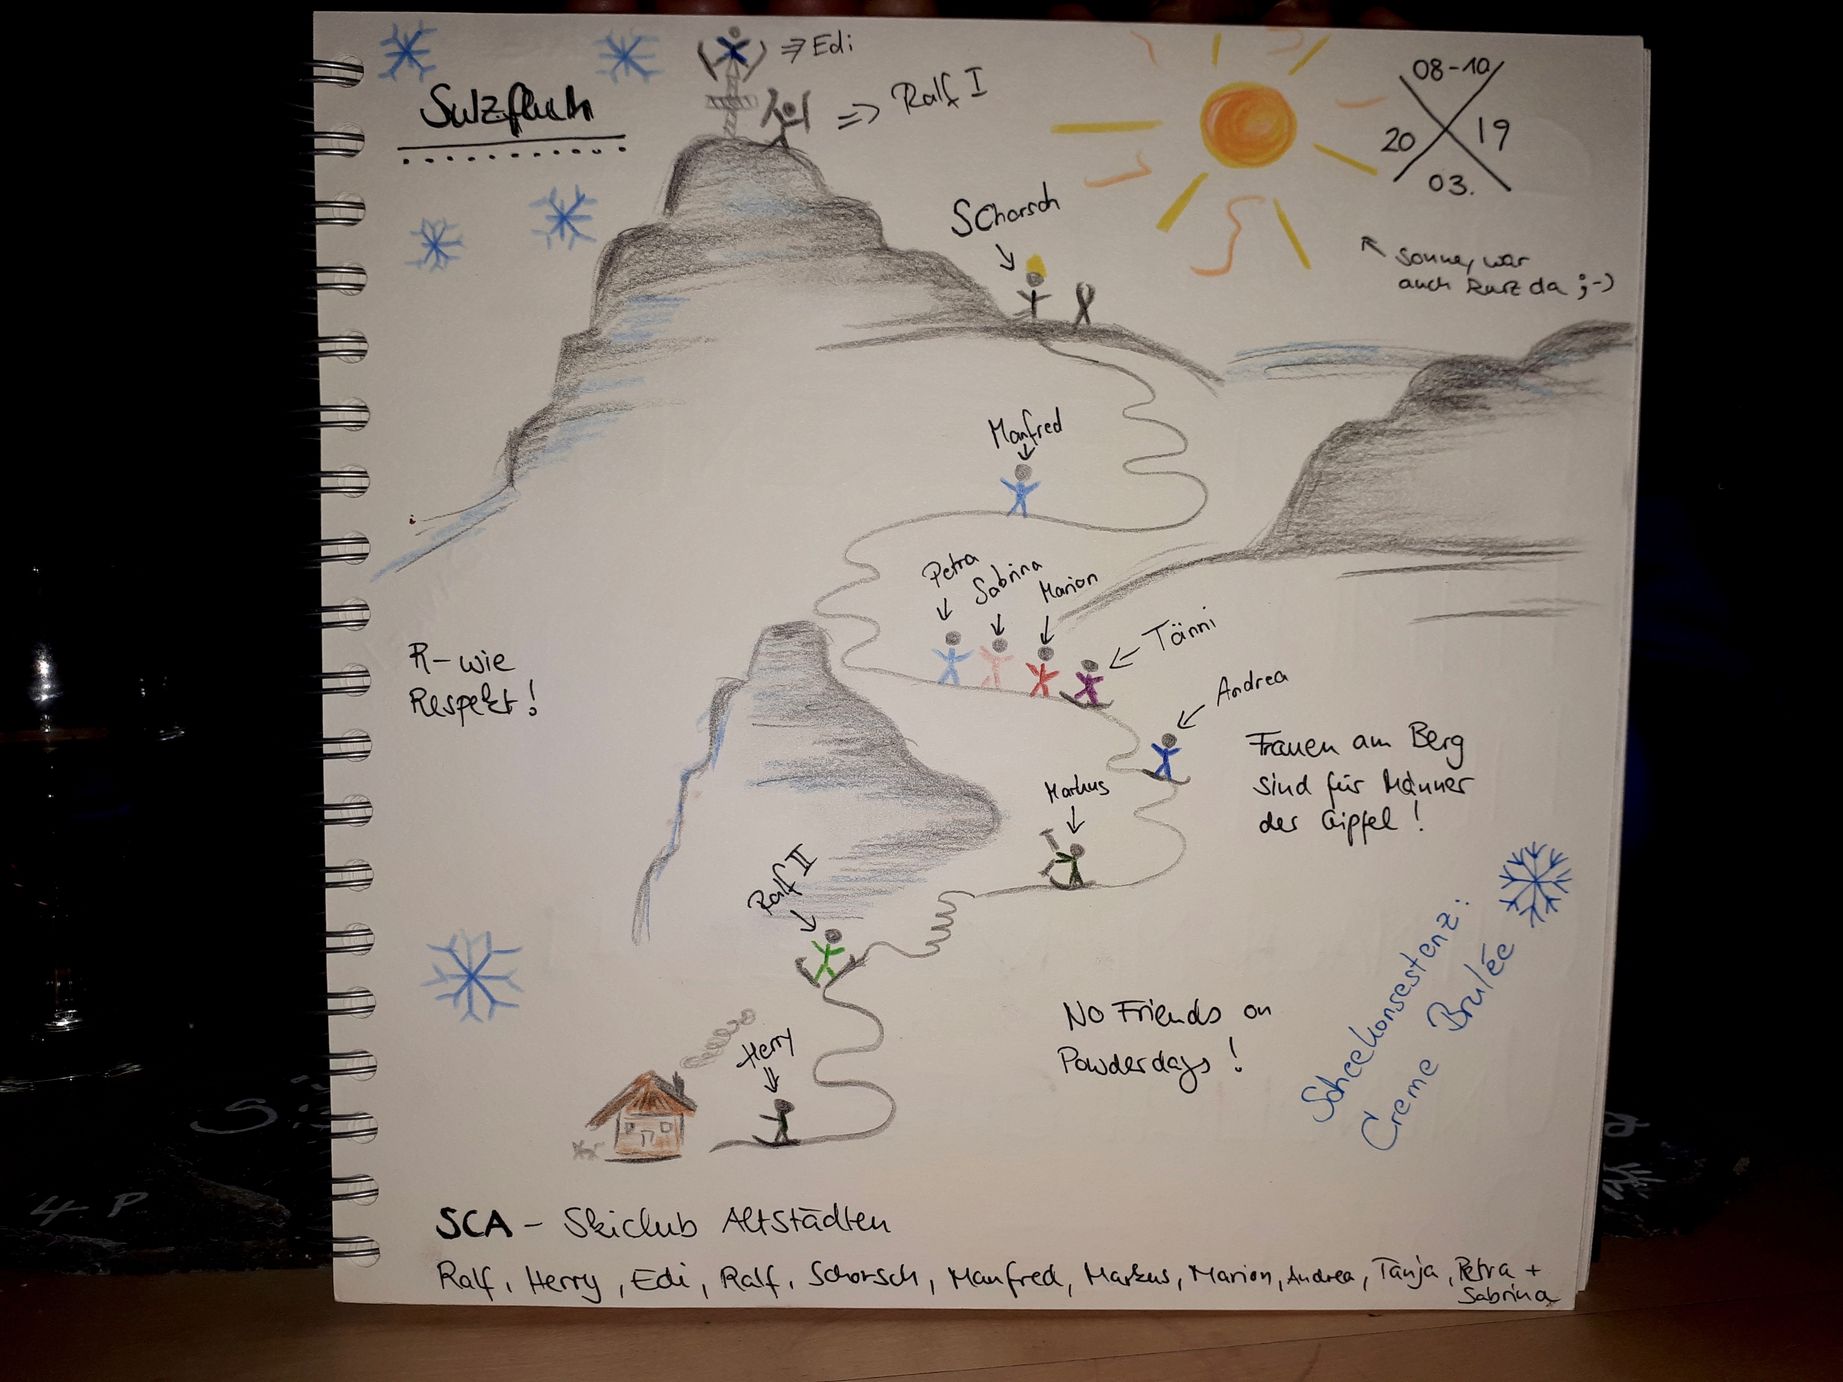 Sulzfluh
⇒ Edi
⇒ Ralf I
08-10
20 19
03.
Schorsch
Sonne, war
auch kurz da ;-)
Manfred
Petra
Sabrina
Marion
Tänni
Andrea
R-wie
Respekt!
Frauen am Berg
sind für Männer
der Gipfel!
Markus
Ralf II
Herry
No Friends on
Powderdays!
Scheekonsestenz:
Creme Brulée
SCA - Skiclub Altstädten
Ralf, Herry, Edi, Ralf, Schorsch, Manfred, Markus, Marion, Andrea, Tanja, Petra +
Sabrina
4 P